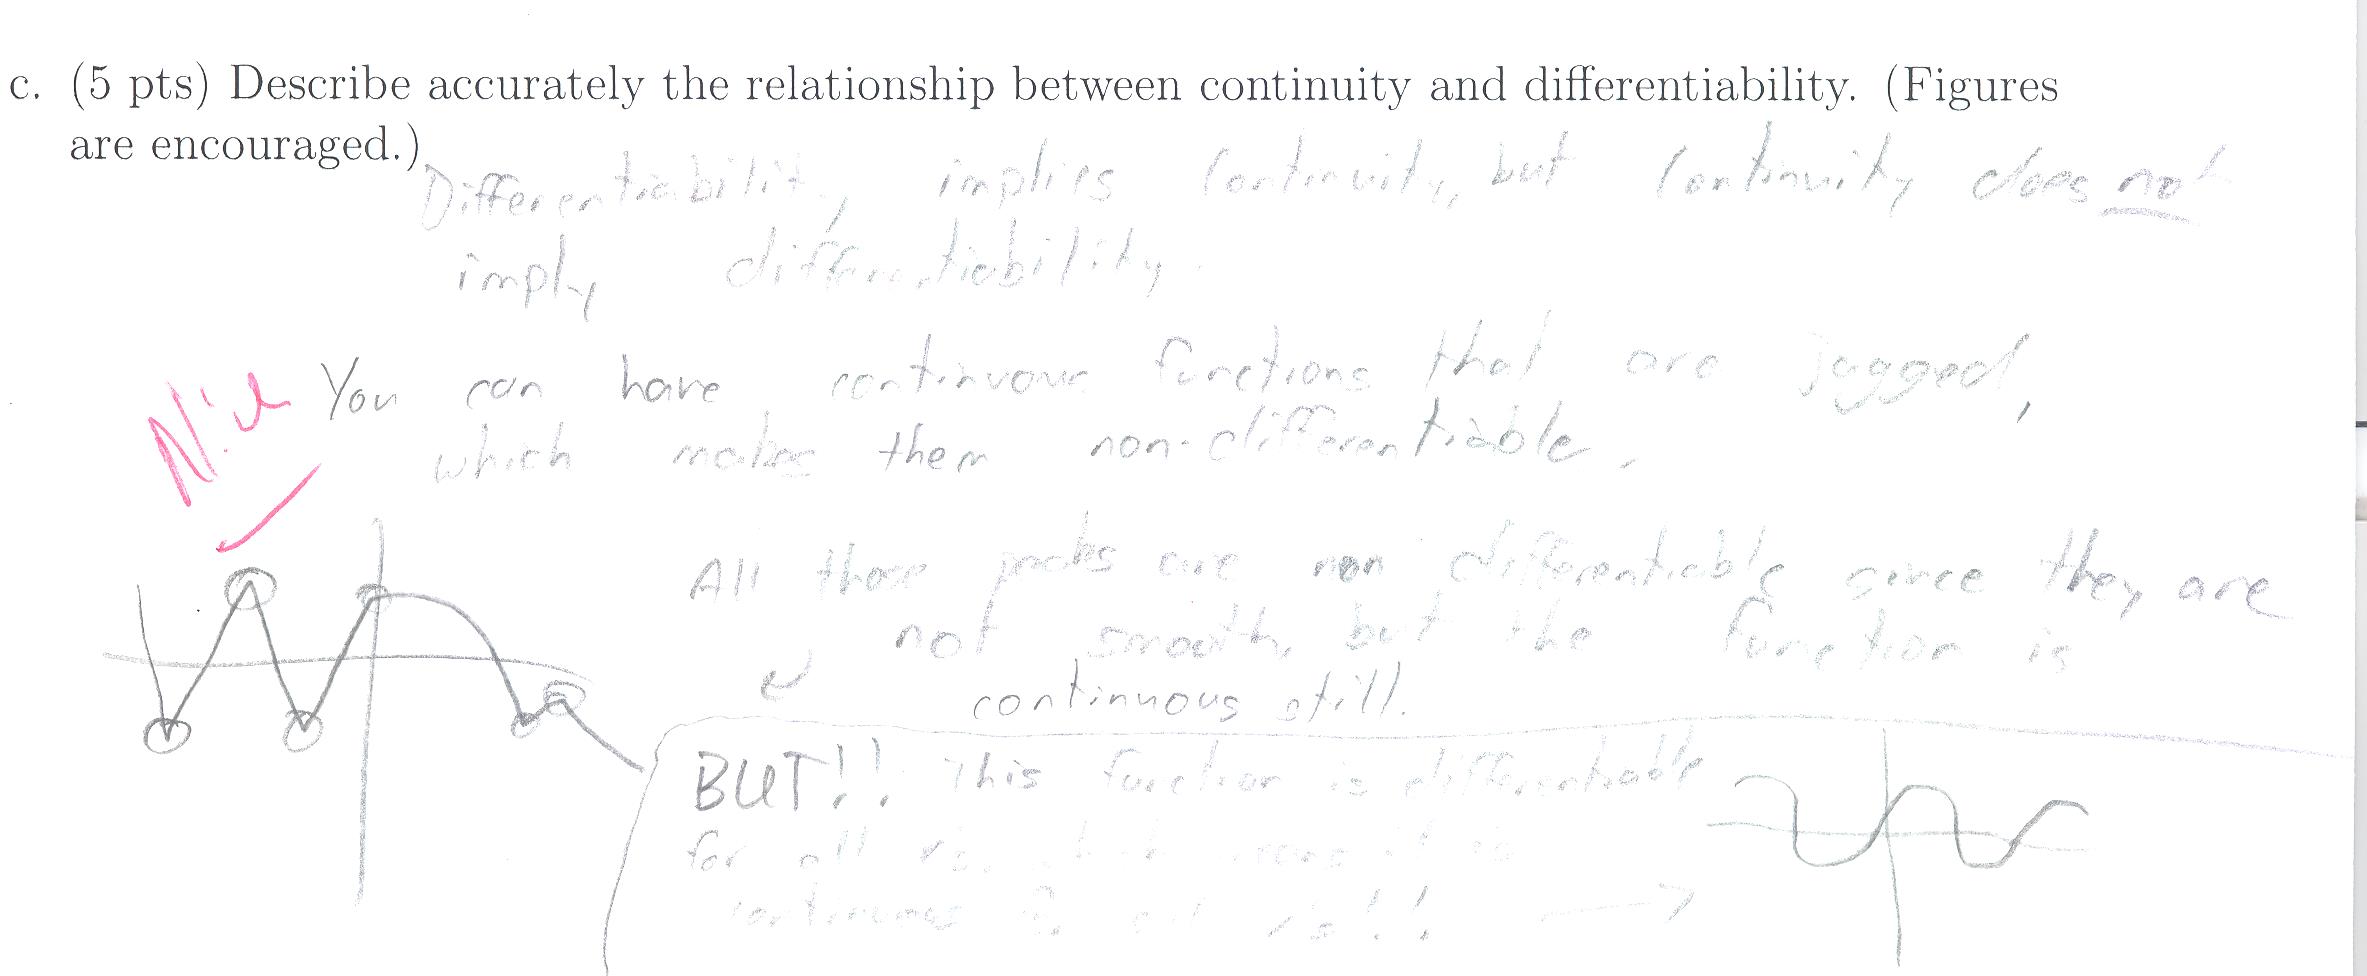 c. (5 pts) Describe accurately the relationship between continuity and differentiability. (Figures
are encouraged.)
Differentiability implies Continuity, but Continuity does not
imply differentiability.
Nice
You can have continuous functions that are jagged,
which makes them non-differentiable.
All those peaks are non differentiable since they are
not smooth, but the function is
continuous still.
BUT!! This function is differentiable
for all x's, which means it is
continuous for all x's!!